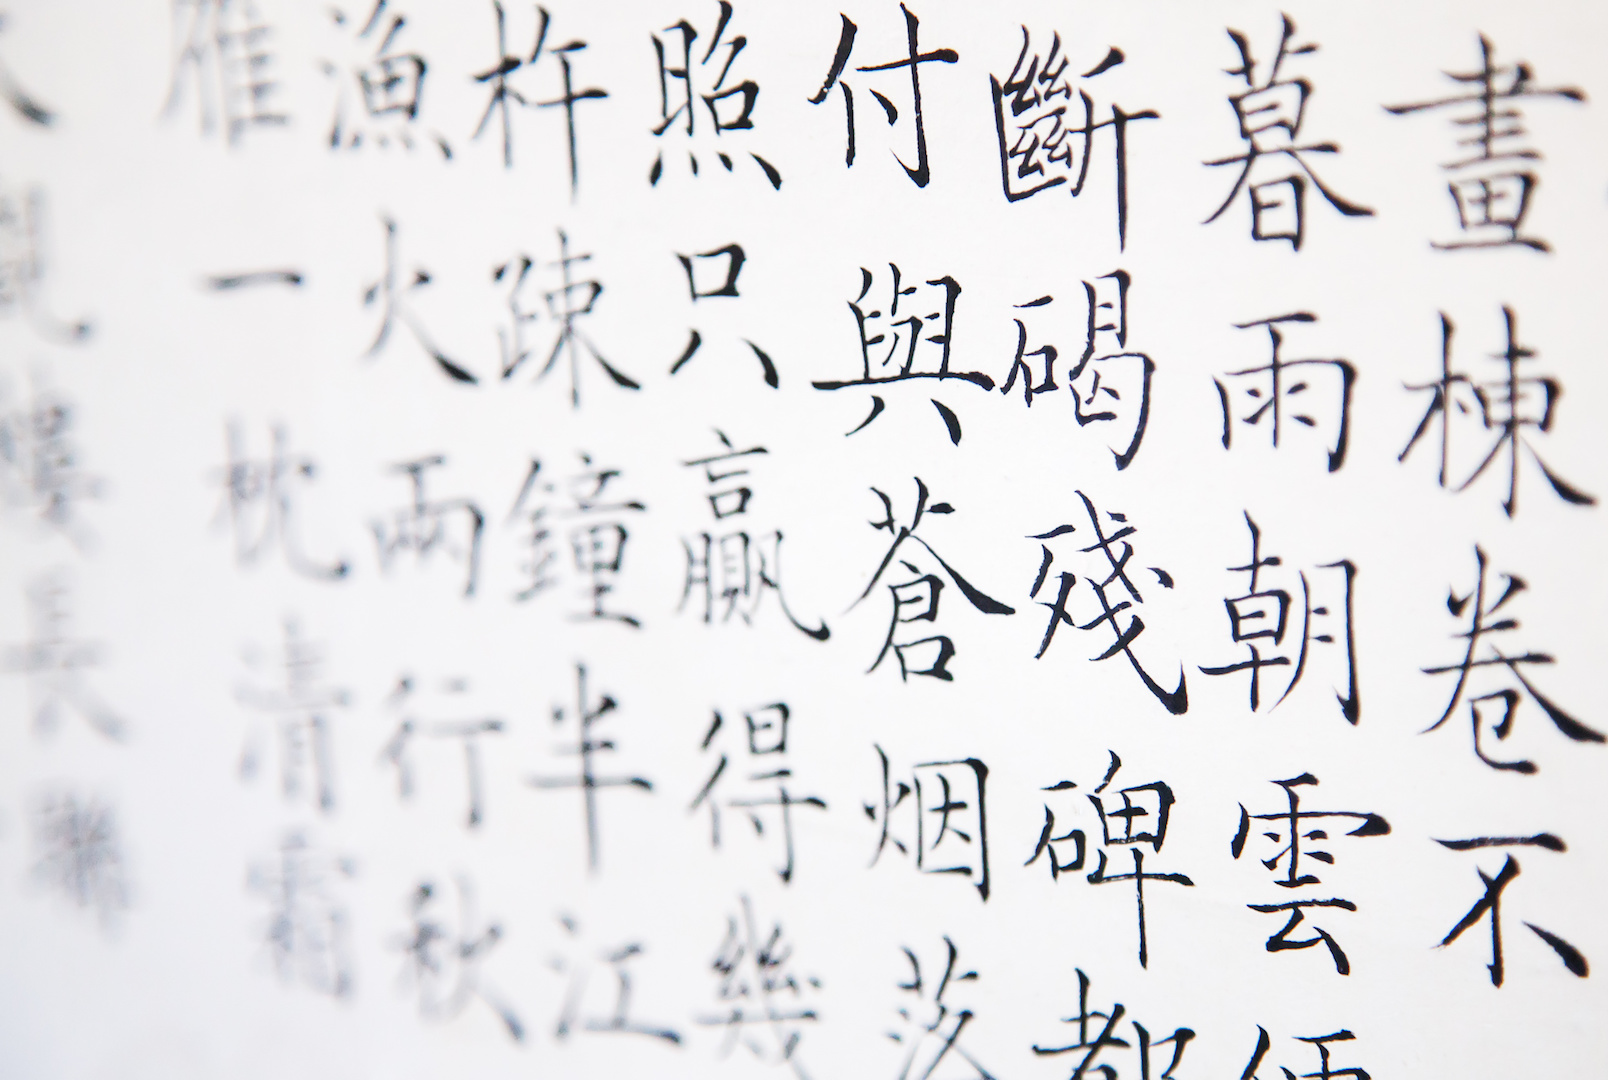 畫棟卷不
暮雨朝雲便
斷碣殘碑都
付與蒼烟落
照只贏得幾
杵疎鐘半江
漁火兩行秋
雁一枕清霜
樓長聯